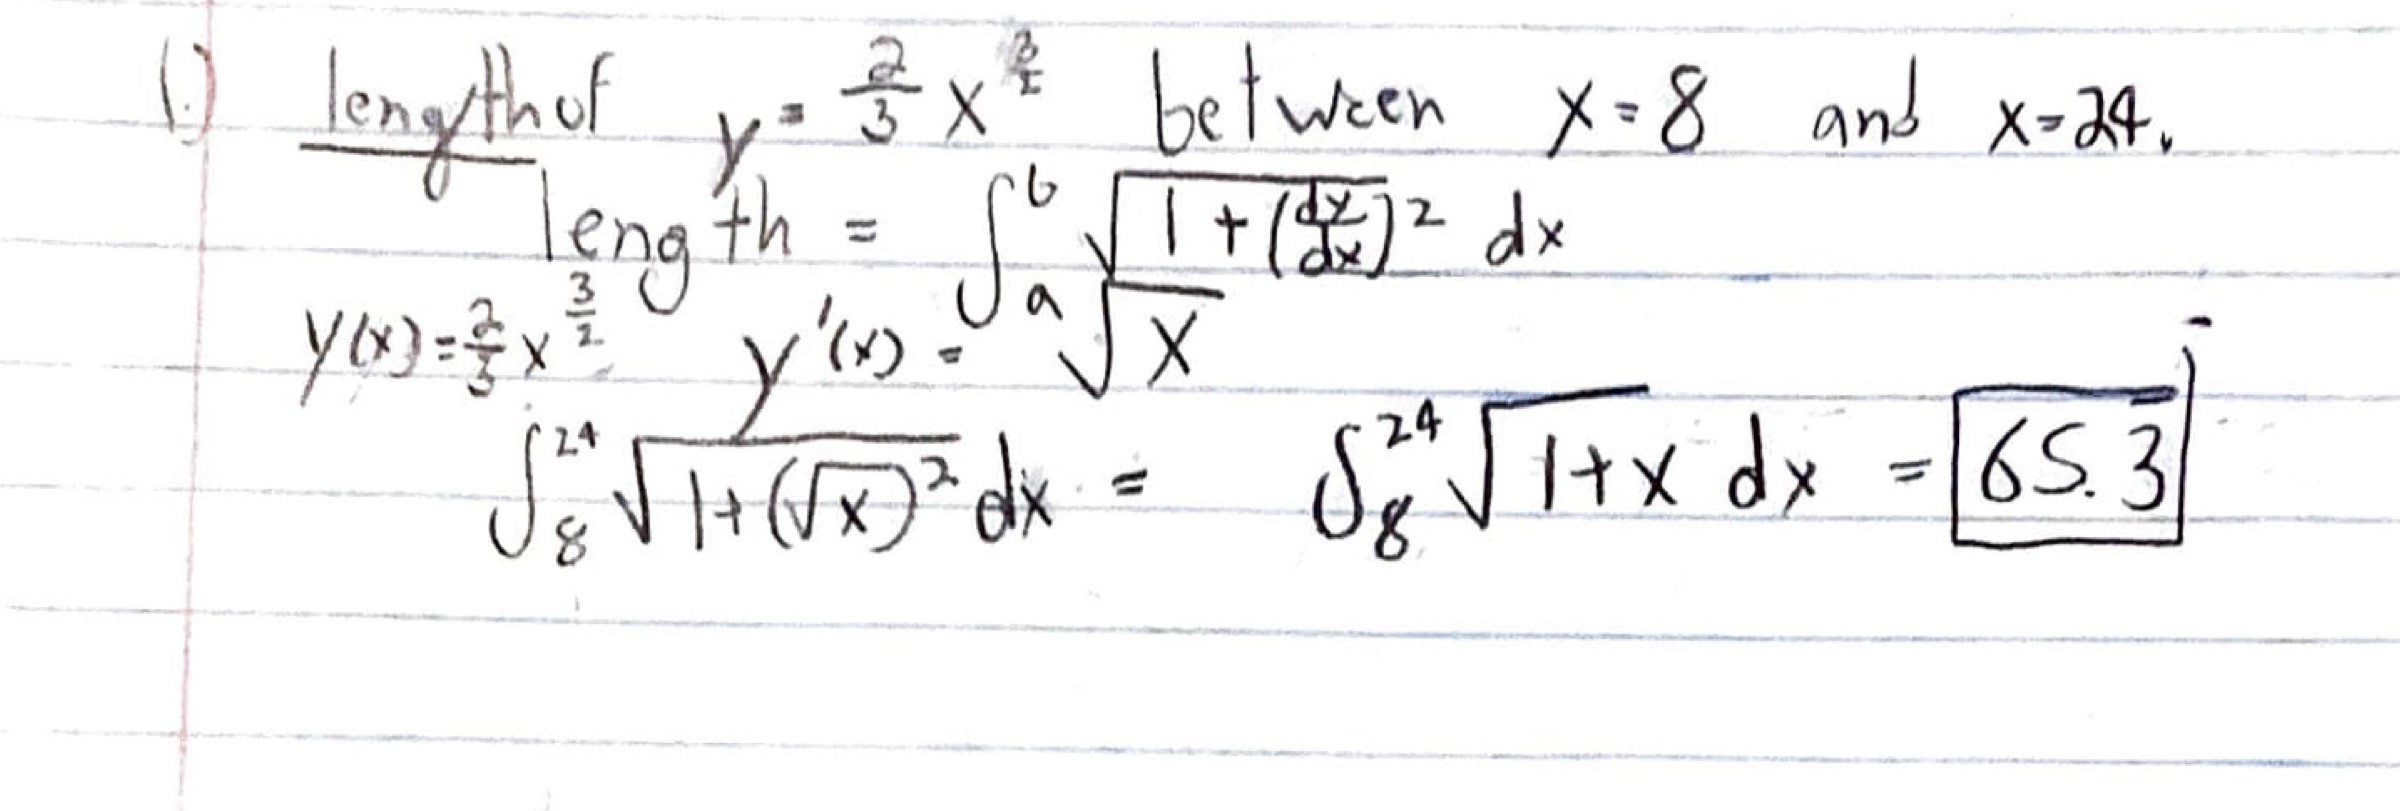 1.) length of y = 2/3 x^(3/2) between x = 8 and x = 24.
length = ∫_a^b √(1 + (dy/dx)²) dx
y(x) = 2/3 x^(3/2) y'(x) = √x
∫_8^24 √(1+(√x)²) dx = ∫_8^24 √(1+x) dx = 65.3̅